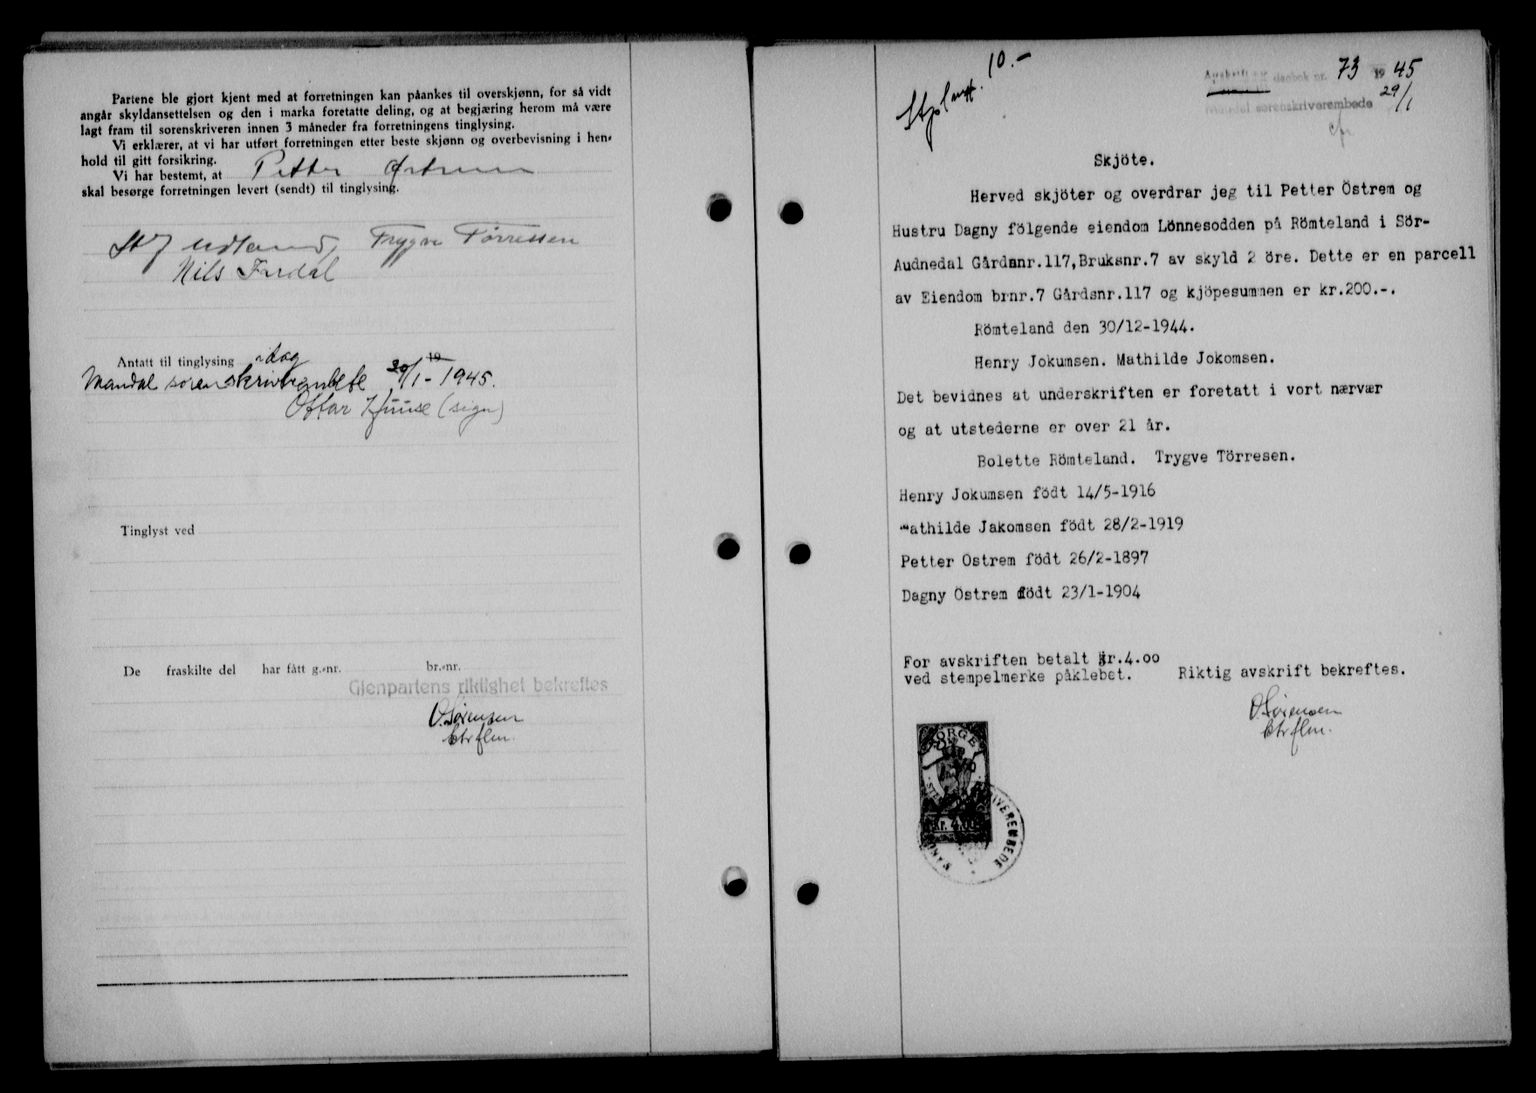 Partene ble gjort kjent med at forretningen kan påankes til overskjønn, for så vidt
angår skyldansettelsen og den i marka foretatte deling, og at begjæring herom må være
lagt fram til sorenskriveren innen 3 måneder fra forretningens tinglysing.
Vi erklærer, at vi har utført forretningen etter beste skjønn og overbevisning i hen-
hold til gitt forsikring.
Vi har bestemt, at Petter Østrem
skal besørge forretningen levert (sendt) til tinglysing.
Trygve Tørressen
Nils
Antatt til tinglysing idag 19
Mandal sorenskriverembete 30/1-1945.
Ottar Huuse (sign)
Tinglyst ved
De fraskilte del har fått g.-nr. br.-nr.
Gjenpartens riktighet bekreftes
O. Sörensen
ktrflm.
10.-
Avskrift av dagbok nr. 73 1945
29/1
Mandal sorenskriverembede
Skjöte.
Herved skjöter og overdrar jeg til Petter Östrem og
Hustru Dagny fölgende eiendom Lönnesodden på Römteland i Sör-
Audnedal Gårdsnr.117,Bruksnr.7 av skyld 2 öre. Dette er en parcell
av Eiendom brnr.7 Gårdsnr.117 og kjöpesummen er kr.200.-.
Römteland den 30/12-1944.
Henry Jokumsen. Mathilde Jokomsen.
Det bevidnes at underskriften er foretatt i vort nærvær
og at utstederne er over 21 år.
Bolette Römteland. Trygve Törresen.
Henry Jokumsen födt 14/5-1916
Mathilde Jakomsen födt 28/2-1919
Petter Ostrem födt 26/2-1897
Dagny Östrem födt 23/1-1904
For avskriften betalt kr.4.00
ved stempelmerke påklebet.
Riktig avskrift bekreftes.
O. Sörensen
ktrflm.
NORGE
Kr. 4.00